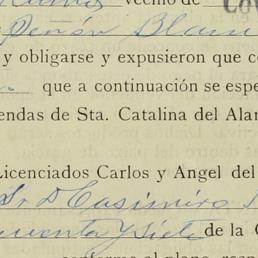 vecino de
Peñón Blan
y obligarse y expusieron que c
que a continuación se espe
endas de Sta. Catalina del Alar
Licenciados Carlos y Angel del
Sr D Casimiro
cuenta y siete de la C